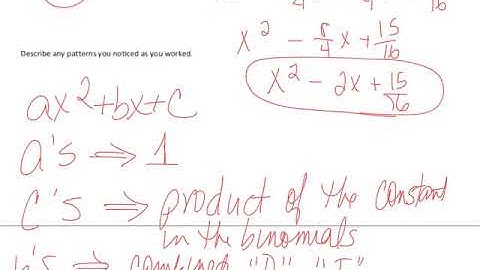 16
x² - 8/4 x + 15/16
Describe any patterns you noticed as you worked.
x² - 2x + 15/16
ax²+bx+c
a's ⇒ 1
c's ⇒ product of the constant
in the binomials
b's ⇒ combined "O" "I"